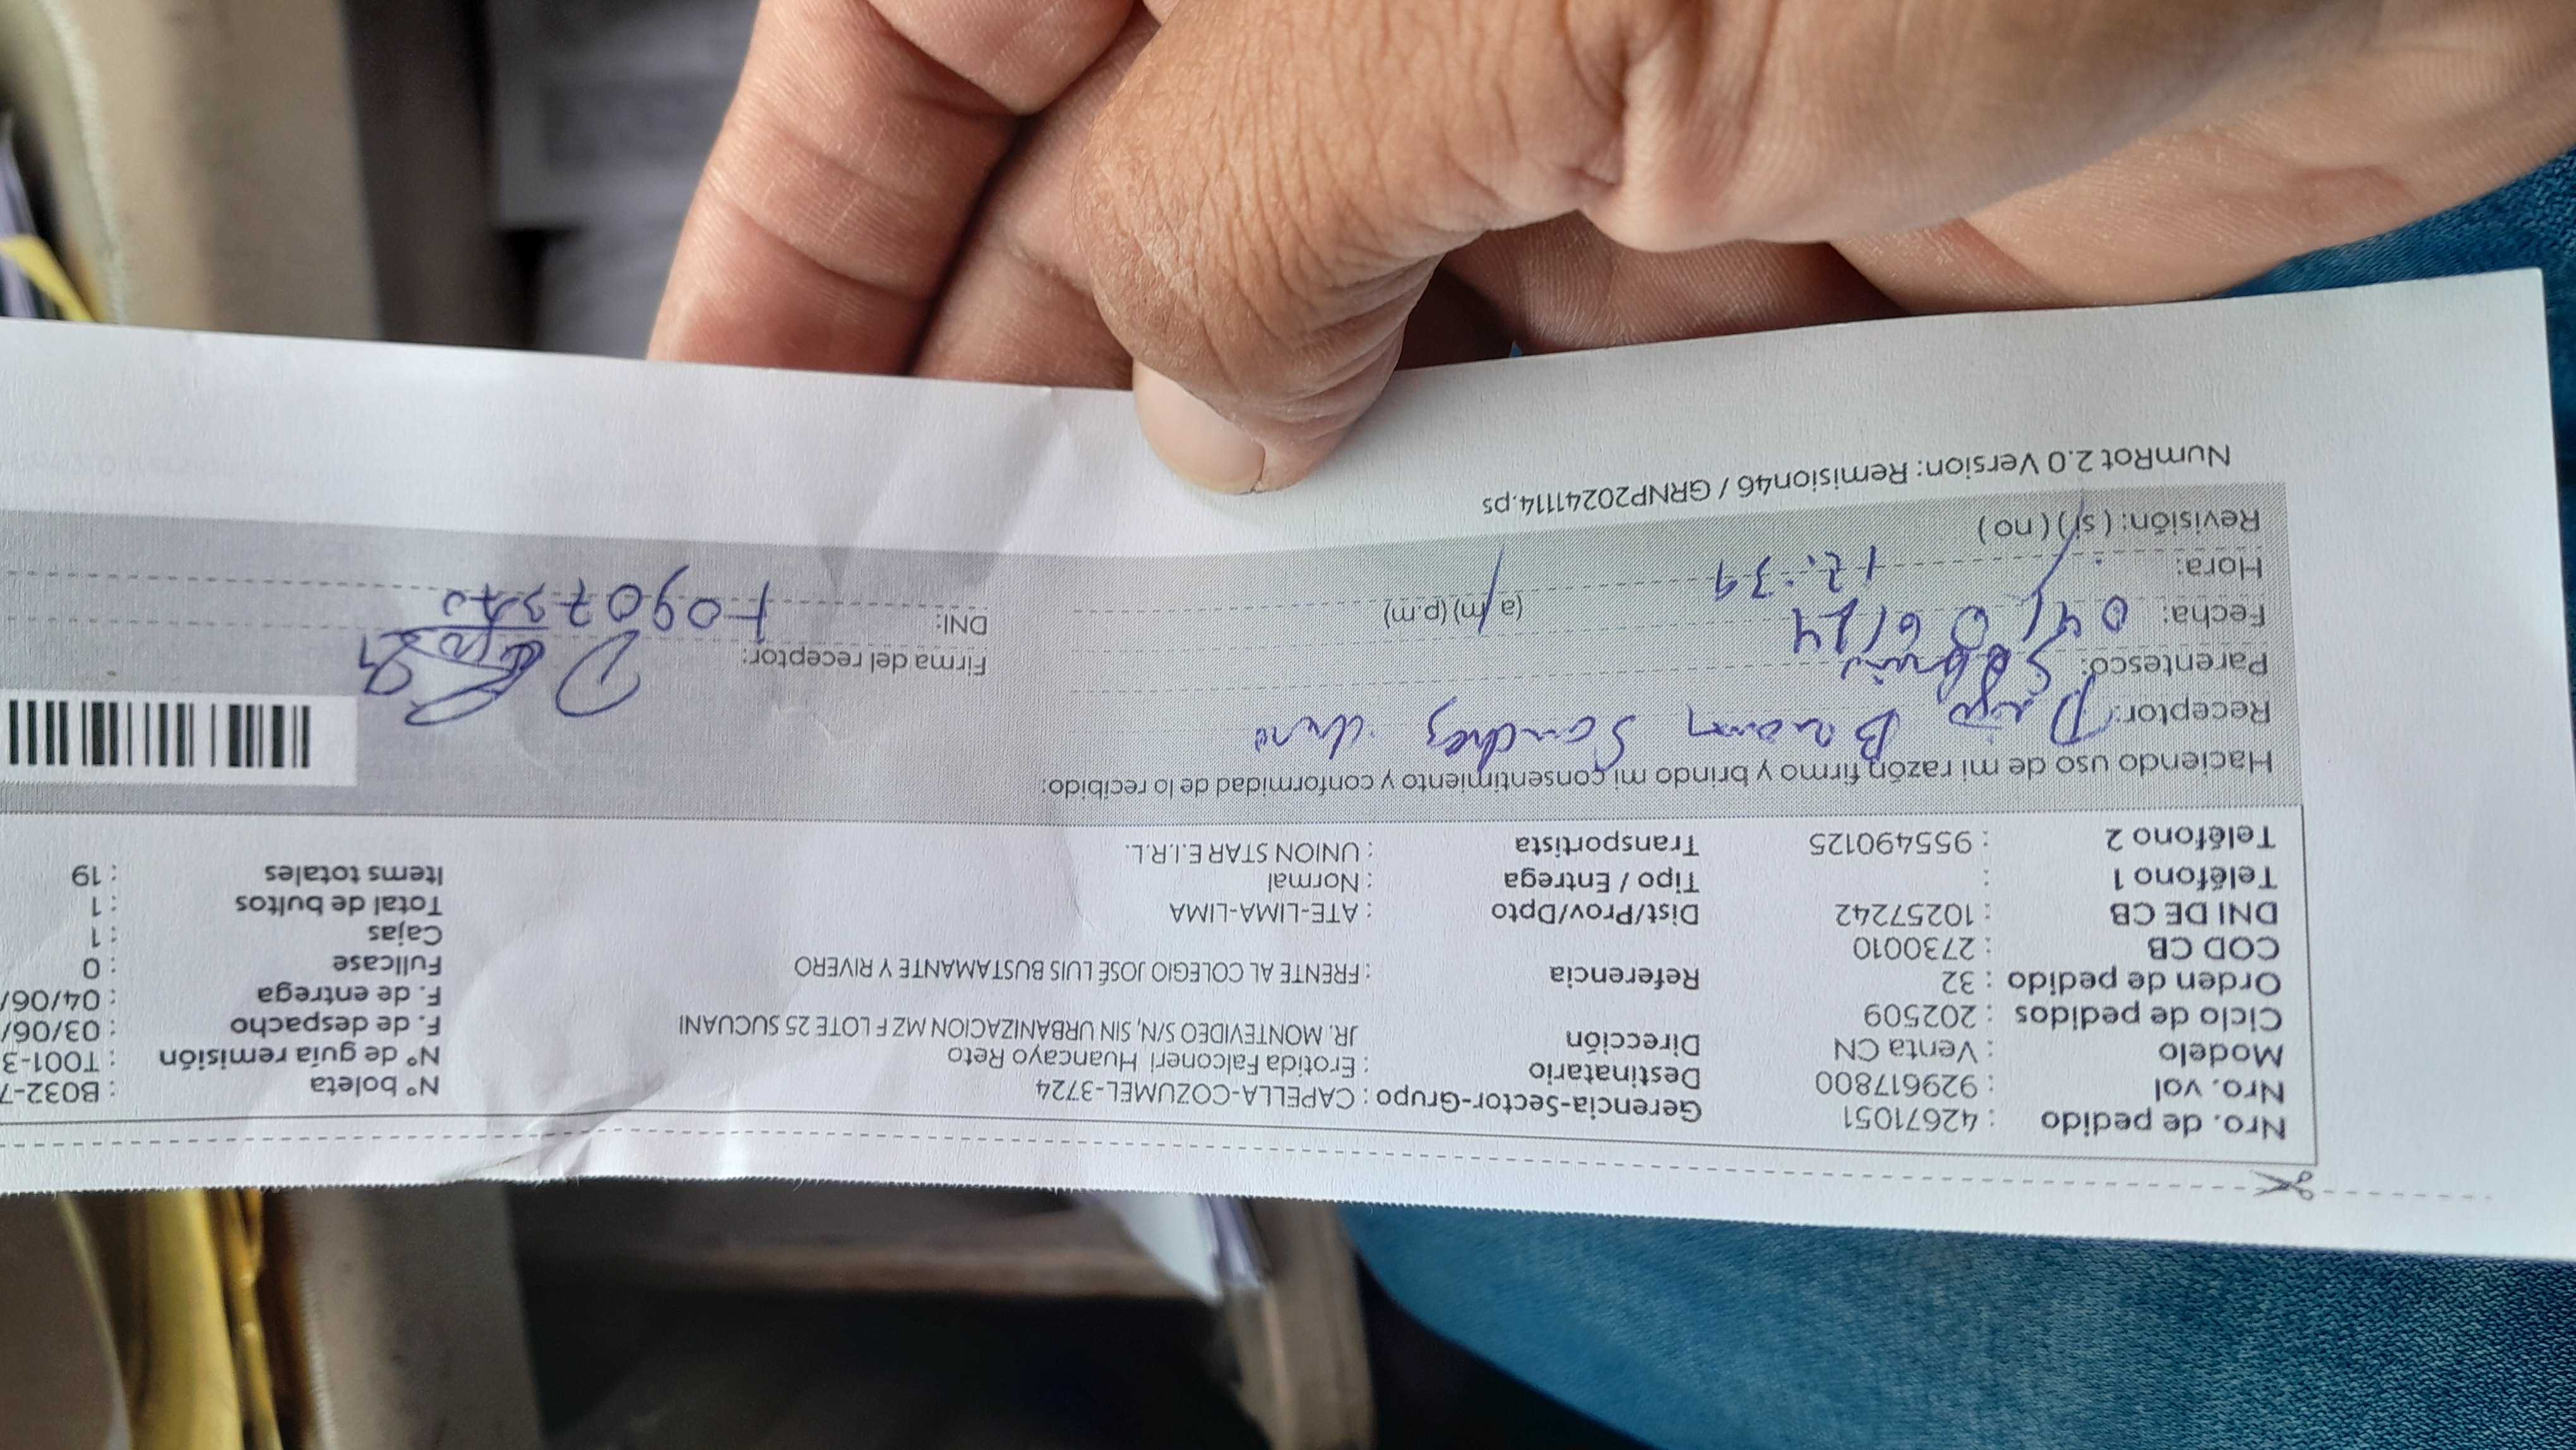 Nro. de pedido : 42671051 Gerencia-Sector-Grupo : CAPELLA-COZUMEL-3724 N° boleta : B032-7
Nro. vol : 929617800 Destinatario : Erotida Falconeri Huancayo Reto N° de guía remisión : T001-3
Modelo : Venta CN Dirección JR. MONTEVIDEO S/N, SIN URBANIZACION MZ F LOTE 25 SUCUANI F. de despacho : 03/06/
Ciclo de pedidos : 202509 F. de entrega : 04/06/
Orden de pedido : 32 Referencia : FRENTE AL COLEGIO JOSÉ LUIS BUSTAMANTE Y RIVERO Fullcase : 0
COD CB : 2730010 Cajas : 1
DNI DE CB : 10257242 Dist/Prov/Dpto : ATE-LIMA-LIMA Total de bultos : 1
Teléfono 1 : Tipo / Entrega : Normal Items totales : 19
Teléfono 2 : 955490125 Transportista : UNION STAR E.I.R.L.
Haciendo uso de mi razón firmo y brindo mi consentimiento y conformidad de lo recibido:
Receptor: Sanchez
Parentesco: Firma del receptor:
Fecha: 04/06/ (a/m) (p.m) DNI:
Hora: 12:39
Revisión: ( si ) ( no )
NumRot 2.0 Version: Remision46 / GRNP20241114.ps